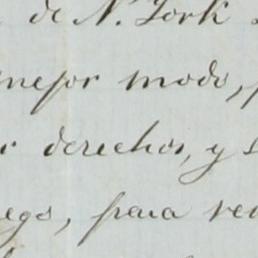 de N. York
mejor modo,
r derechos, y s
ego, para re